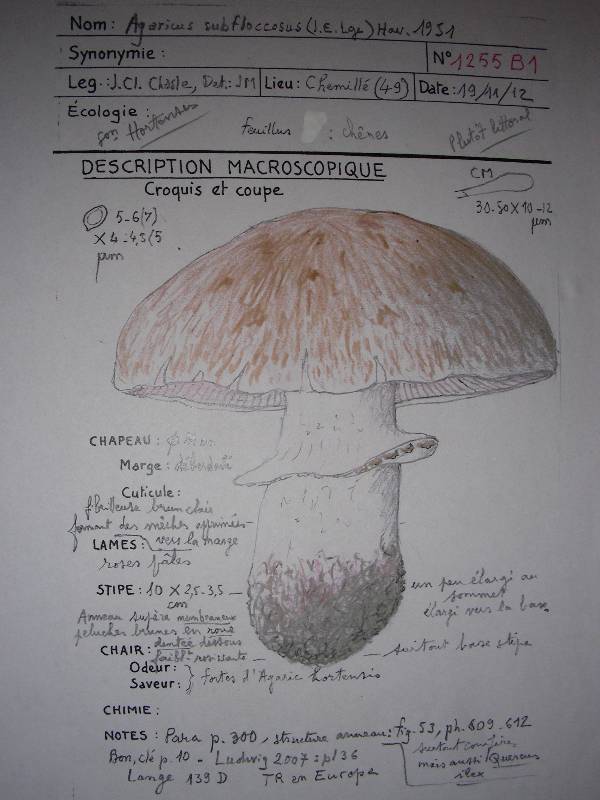 Nom: Agaricus subfloccosus (J.E. Lge) Hav. 1951
Synonymie :
N° 1255 B1
Leg.: J.Cl. Chasle, Det.: JM
Lieu: Chemillé (49)
Date: 19/11/12
Écologie :
son Hortensis
feuillus : chênes
Plutôt littoral
DESCRIPTION MACROSCOPIQUE
Croquis et coupe
CM
5-6(7)
X 4-4,5(5
µm
30-50 X 10-12
µm
CHAPEAU :
Marge : débordante
Cuticule :
fibrilleuse brun clair
formant des mèches apprimées
vers la marge
LAMES :
roses pâles
STIPE : 10 X 2,5-3,5
cm
Anneau supère membraneux
peluches brunes en roue
dentée dessous
un peu élargi au
sommet
élargi vers la base
CHAIR : faiblt rosissante
surtout base stipe
Odeur :
Saveur :
fortes d'Agaric hortensis
CHIMIE :
NOTES : Para p. 300, structure anneau: fig. 53, ph. 609-612
Bon, clé p. 10 - Ludwig 2007: pl 36
Lange 139 D TR en Europe
surtout conifères
mais aussi Quercus
ilex